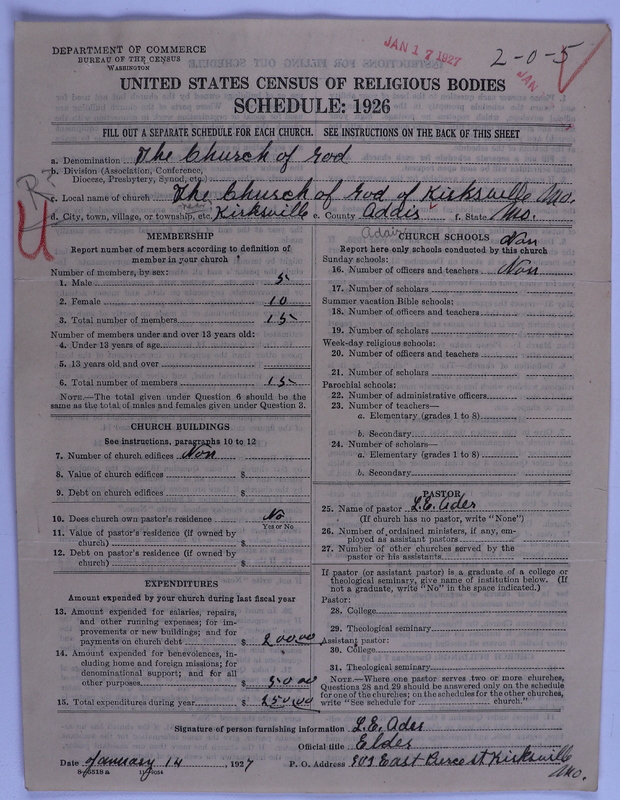 DEPARTMENT OF COMMERCE
BUREAU OF THE CENSUS
WASHINGTON
JAN 17 1927
2-0-5
JAN
UNITED STATES CENSUS OF RELIGIOUS BODIES
SCHEDULE: 1926
FILL OUT A SEPARATE SCHEDULE FOR EACH CHURCH. SEE INSTRUCTIONS ON THE BACK OF THIS SHEET
a. Denomination The Church of God
b. Division (Association, Conference, Diocese, Presbytery, Synod, etc.)
c. Local name of church The Church of God of Kirksville Mo.
d. City, town, village, or township, etc. Kirksville e. County Addis f. State Mo.
Adair
MEMBERSHIP
Report number of members according to definition of
member in your church
Number of members, by sex:
1. Male 5
2. Female 10
3. Total number of members 15
Number of members under and over 13 years old:
4. Under 13 years of age
5. 13 years old and over
6. Total number of members 15
NOTE.—The total given under Question 6 should be
the same as the total of males and females given under Question 3.
CHURCH BUILDINGS
See instructions, paragraphs 10 to 12
7. Number of church edifices Non
8. Value of church edifices $
9. Debt on church edifices $
10. Does church own pastor's residence No
Yes or No
11. Value of pastor's residence (if owned by
church) $
12. Debt on pastor's residence (if owned by
church) $
EXPENDITURES
Amount expended by your church during last fiscal year
13. Amount expended for salaries, repairs,
and other running expenses; for im-
provements or new buildings; and for
payments on church debt $ 200.00
14. Amount expended for benevolences, in-
cluding home and foreign missions; for
denominational support; and for all
other purposes $ 50.00
15. Total expenditures during year $ 250.00
CHURCH SCHOOLS Non
Report here only schools conducted by this church
Sunday schools:
16. Number of officers and teachers Non
17. Number of scholars
Summer vacation Bible schools:
18. Number of officers and teachers
19. Number of scholars
Week-day religious schools:
20. Number of officers and teachers
21. Number of scholars
Parochial schools:
22. Number of administrative officers
23. Number of teachers—
a. Elementary (grades 1 to 8)
b. Secondary
24. Number of scholars—
a. Elementary (grades 1 to 8)
b. Secondary
PASTOR
25. Name of pastor L.E. Ades
(If church has no pastor, write "None")
26. Number of ordained ministers, if any, em-
ployed as assistant pastors
27. Number of other churches served by the
pastor or his assistants
If pastor (or assistant pastor) is a graduate of a college or
theological seminary, give name of institution below. (If
not a graduate, write "No" in the space indicated.)
Pastor:
28. College
29. Theological seminary
Assistant pastor:
30. College
31. Theological seminary
NOTE.—Where one pastor serves two or more churches,
Questions 28 and 29 should be answered only on the schedule
for one of the churches; on the schedules for the other churches,
write "See schedule for church."
Signature of person furnishing information L.E. Ades
Official title Elder
Date January 14, 1927 P. O. Address 903 East Pierce st Kirksville
Mo.